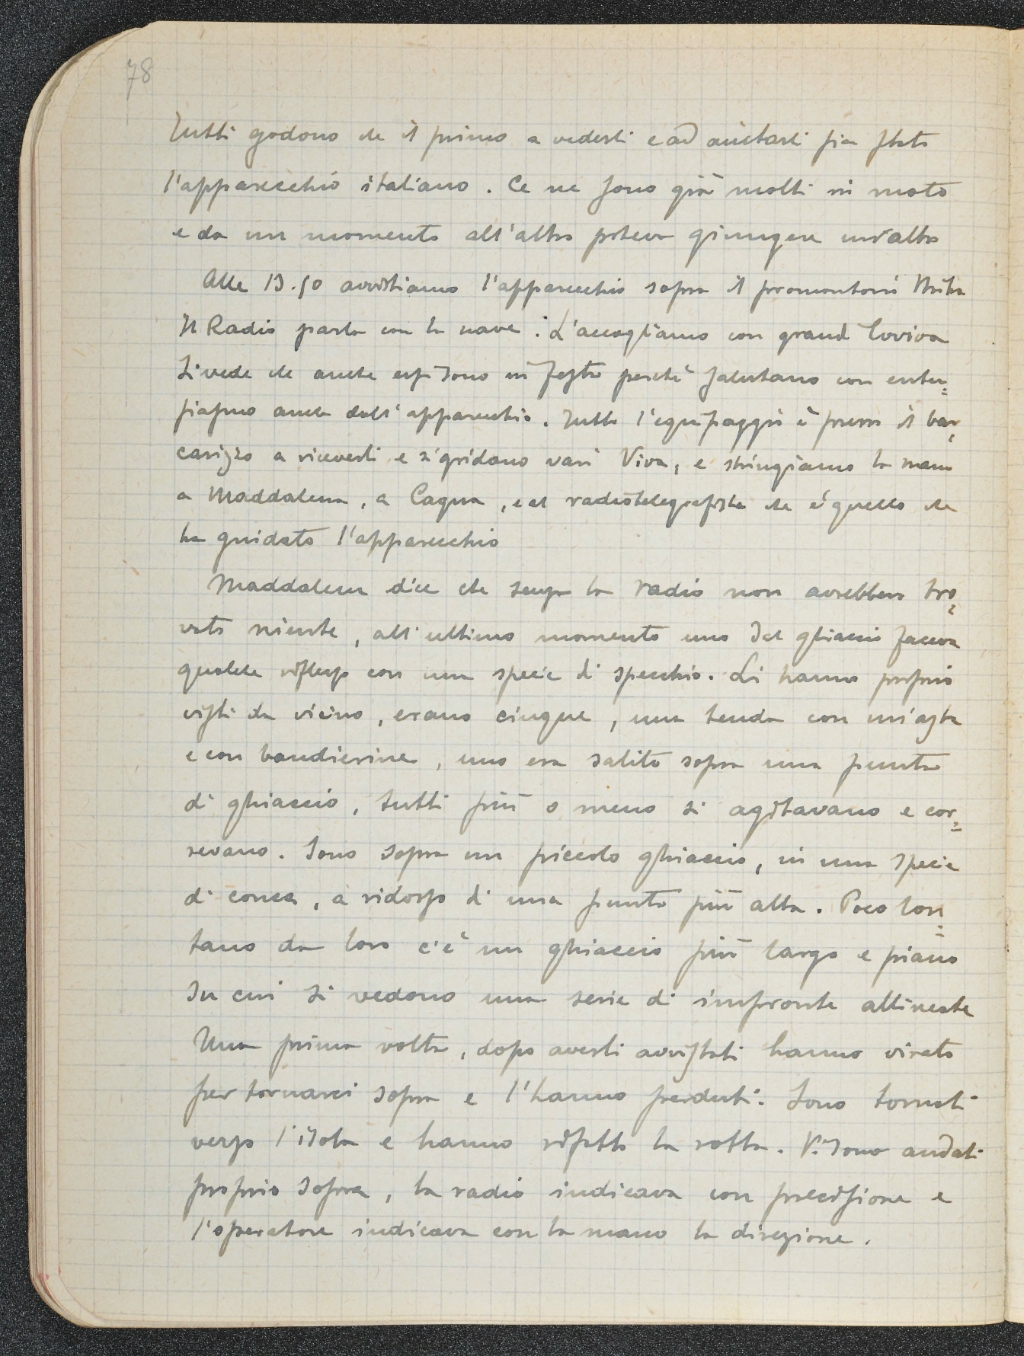 78
Tutti godono che il primo a vederli e ad aiutarli sia stato
l'apparecchio italiano. Ce ne sono già molti in moto
e da un momento all'altro poteva giungere un'altro
Alle 13.50 avvistiamo l'apparecchio sopra il promontorio
Il Radio parla con la nave. L'accogliamo con grandi Evviva
Si vede che anche essi sono in festa perché salutano con entu=
siasmo anche dall'apparecchio. Tutto l'equipaggio è presso il bar=
carizzo a riceverli e si gridano vari Viva, e stringiamo la mano
a Maddalena, a Cagna, e al radiotelegrafista che è quello che
ha guidato l'apparecchio
Maddalena dice che senza la radio non avrebbero tro=
vato niente, all'ultimo momento uno dal ghiaccio faceva
qualche riflesso con una specie di specchio. Li hanno proprio
visti da vicino, erano cinque, una tenda con un'asta
e con bandierine, uno era salito sopra una punta
di ghiaccio, tutti più o meno si agitavano e cor=
revano. Sono sopra un piccolo ghiaccio, in una specie
di conca, a ridosso di una punta più alta. Poco lon=
tano da loro c'è un ghiaccio più largo e piano
su cui si vedono una serie di impronte allineate
Una prima volta, dopo averli avvistati hanno virato
per tornarci sopra e l'hanno perduti. Sono tornati
verso l'isola e hanno rifatto la rotta. Vi sono andati
proprio sopra, la radio indicava con precisione e
l'operatore indicava con la mano la direzione.